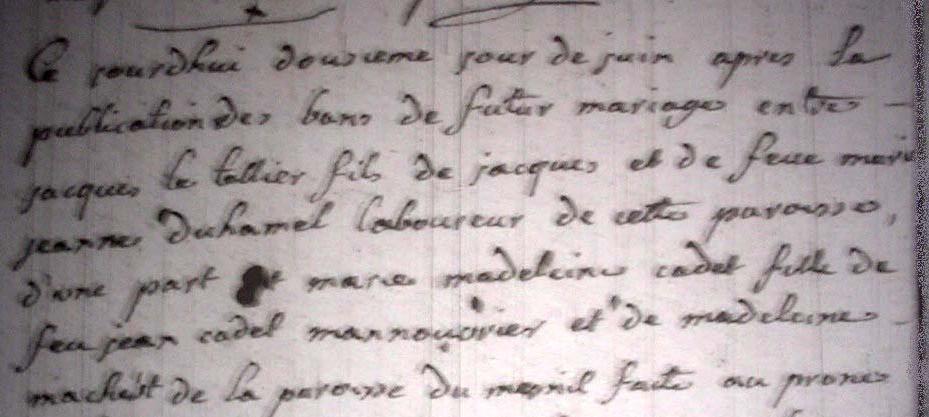 Ce jourdhui dousieme jour de juin apres la
publication des bans de futur mariage entre
jacques le tellier fils de jacques et de feue marie
jeanne Duhamel laboureur de cette paroisse,
d'une part et marie madeleine cadet fille de
feu jean cadet mannouvrier et de madeleine
de la paroisse du mesnil faite au prone